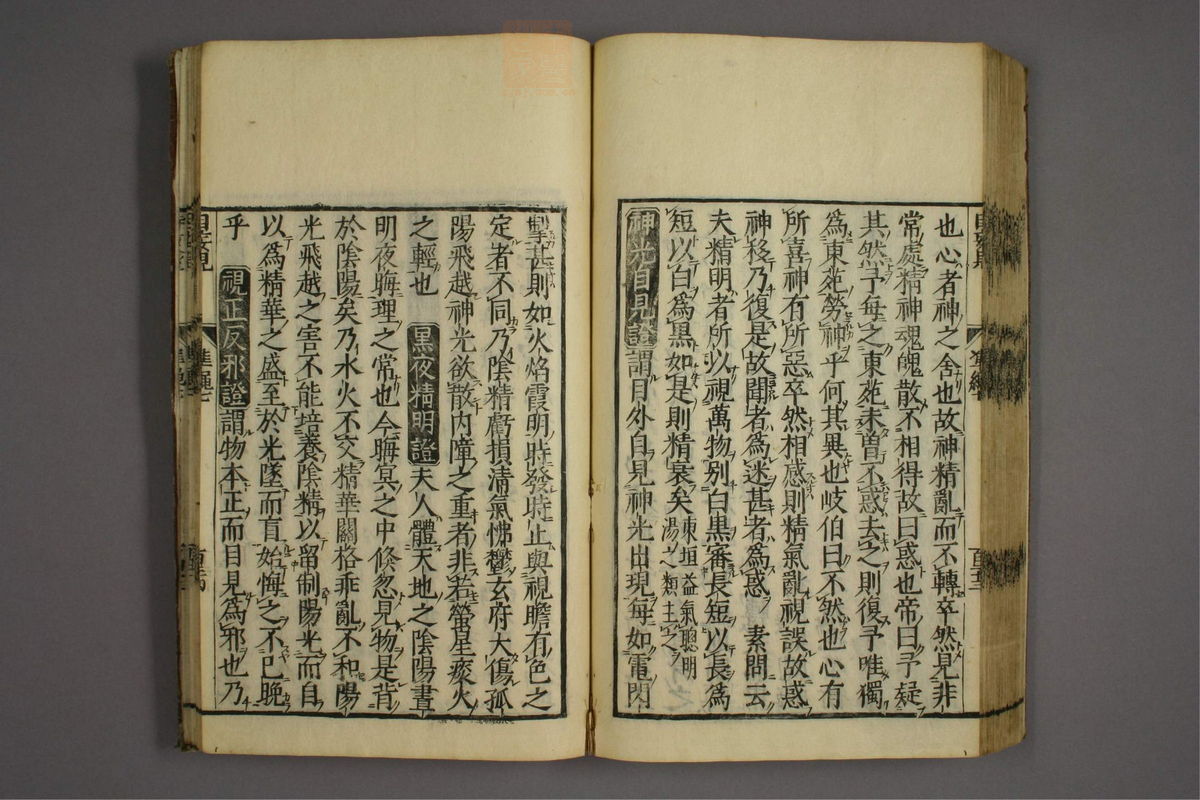 也心者神之舍也故神精亂而不轉卒然見非
常處精神魂魄散不相得故曰惑也帝曰予疑
其然予每之東苑未曽不惑去之則復予唯獨
爲東苑勞神乎何其異也岐伯曰不然也心有
所喜神有所惡卒然相感則精氣亂視誤故惑
神移乃復是故間者爲迷甚者爲惑 素問云
夫精明者所以視萬物别白黒審長短以長爲
短以白爲黒如是則精衰矣東垣益氣聰明湯之類主之
神光自見證謂目外自見神光出現每如電閃
掣甚則如火焰霞明時發時止與視瞻有色之
定者不同乃陰精虧損清氣怫欝玄府大傷孤
陽飛越神光欲散内障之重者非若螢星痰火
之輕也 黒夜精明證夫人體天地之陰陽晝
明夜晦理之常也今晦冥之中倐忽見物是背
於陰陽矣乃水火不交精華關格乖亂不和陽
光飛越之害不能培養陰精以留制陽光而自
以爲精華之盛至於光墜而盲始悔之不已晩
乎 視正反邪證謂物本正而目見爲邪也乃